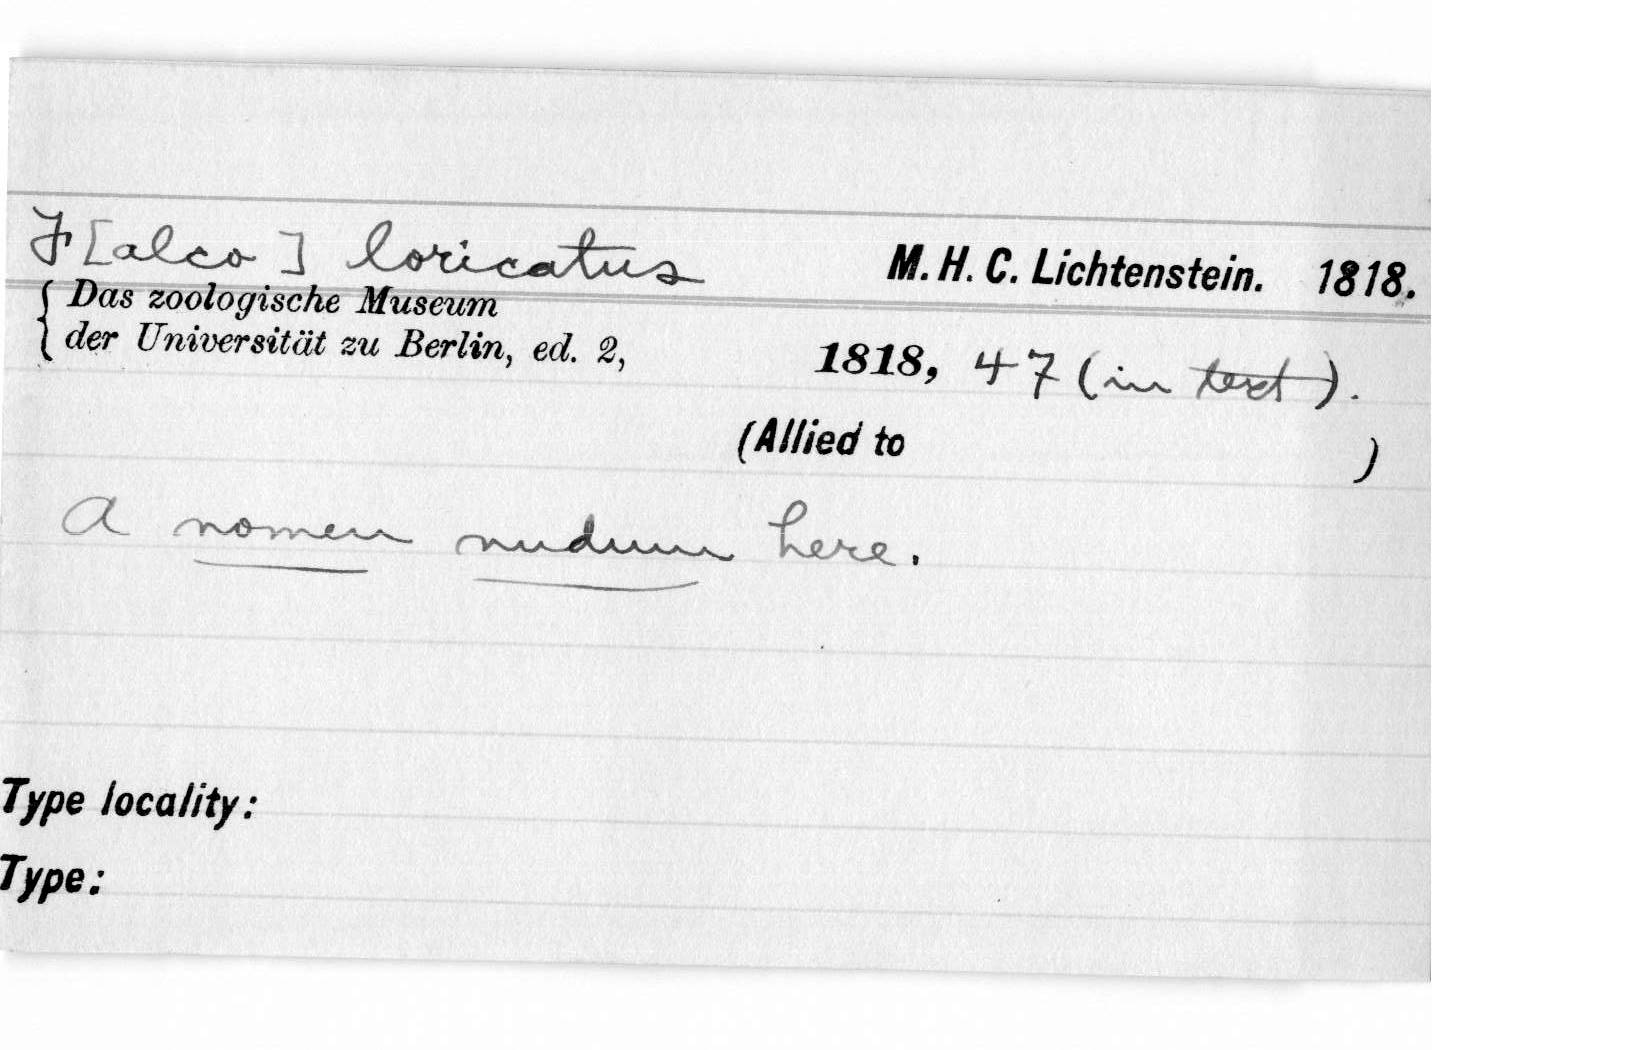 F[alco] loricatus M. H. C. Lichtenstein. 1818.
{ Das zoologische Museum
der Universität zu Berlin, ed. 2, 1818, 47 (in text).
(Allied to )
A nomen nudum here.
Type locality:
Type: